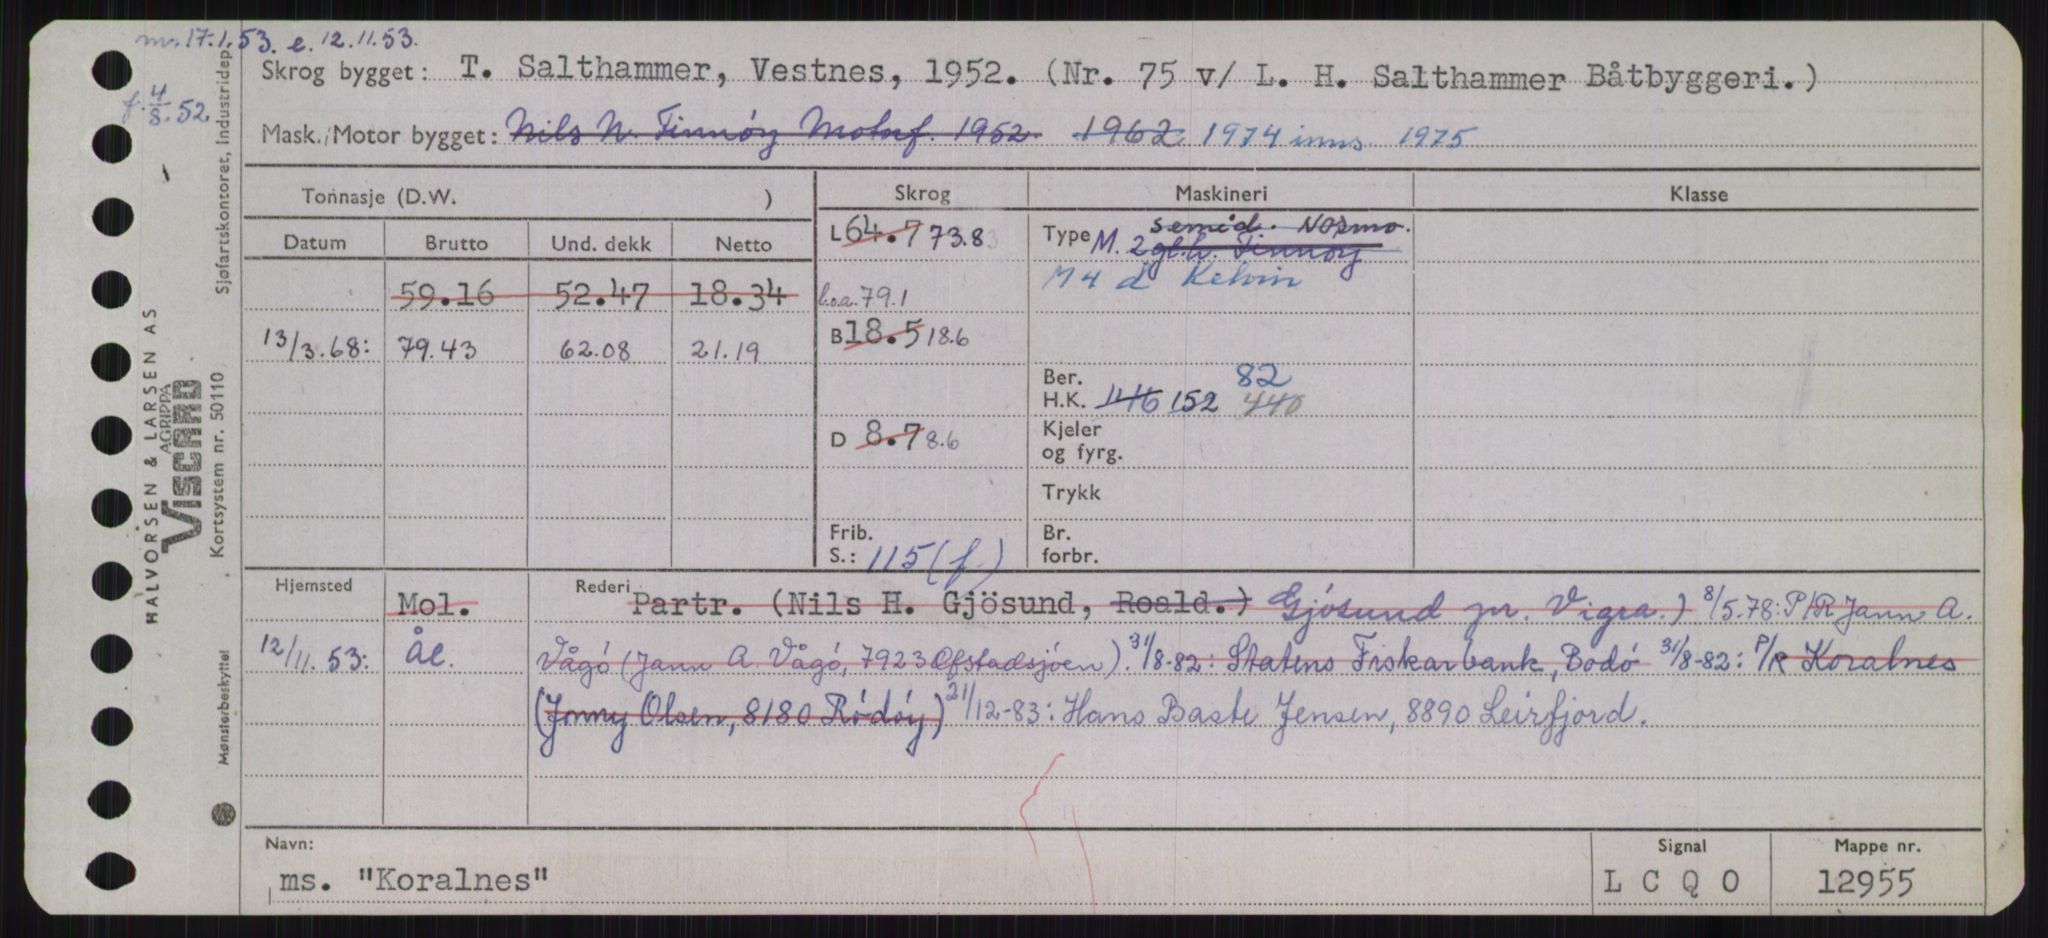 ms. 17.1.53. e. 12.11.53.
f. 4/8.52
Skrog bygget: T. Salthammer, Vestnes, 1952. (Nr. 75 v/ L. H. Salthammer Båtbyggeri.)
Mask./Motor bygget: Nils N. Finnöy Motorf. 1952. 1962 1974 inns 1975
Tonnasje (D.W. ) Skrog Maskineri Klasse
Datum Brutto Und. dekk Netto
L 64.7 73.8
Type M. 2 semid. Normo.
gl.h. Finnöy
M 4 d Kelvin
59.16 52.47 18.34
l.o.a. 79.1
B 18.5 18.6
13/3.68: 79.43 62.08 21.19
Ber. 82
H.K. 146 152 440
D 8.7 8.6
Kjeler
og fyrg.
Trykk
Frib.
S.: 115 (f.)
Br.
forbr.
Hjemsted Mol. Rederi Partr. (Nils H. Gjösund, Roald.) Gjösund pr. Vigra.) 8/5.78: P/R Jann A.
12/11.53: Ål. Vågö (Jann A. Vågö, 7923 Ofstadsjöen). 31/8-82: Statens Fiskarbank, Bodö 31/8-82: P/R Koralnes
(Jonny Olsen, 8180 Rödöy) 21/12-83: Hans Baste Jensen, 8890 Leirfjord.
Navn: Signal Mappe nr.
ms. "Koralnes" L C Q O 12955
HALVORSEN & LARSEN AS
AGRIPPA
VISCARD
Kortsystem nr. 50110
Sjøfartskontoret, Industridep.
Mønsterbeskyttet